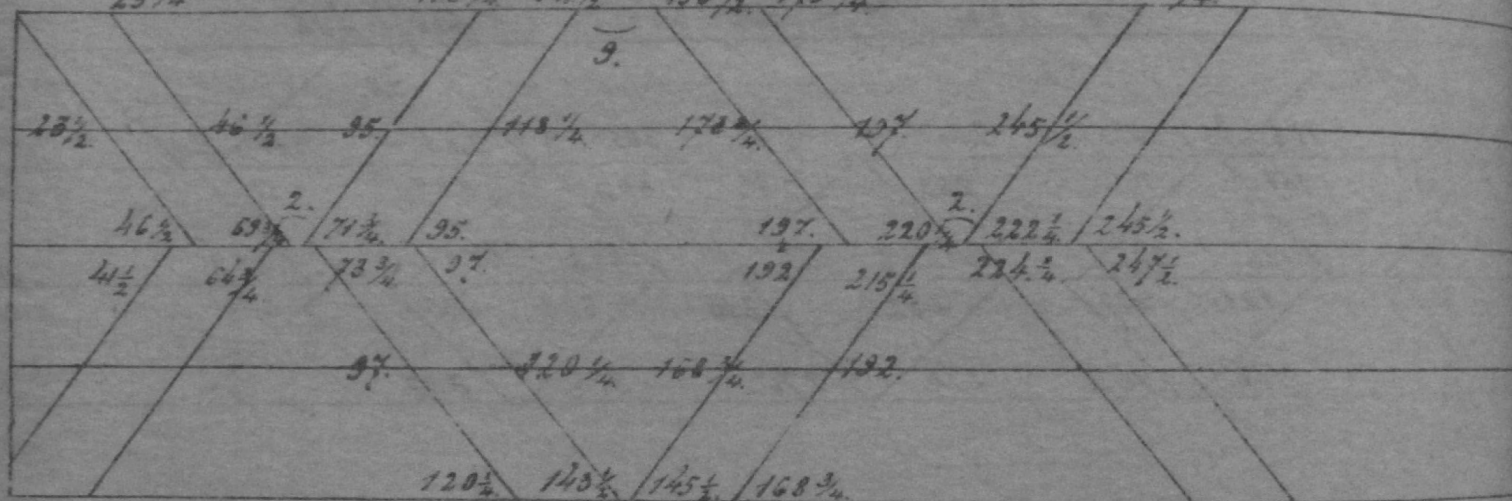 9.
23 1/2. 46 1/2 95. 118 1/4 173 3/4. 197. 245 1/2.
2. 2.
46 1/2 69 3/4 71 3/4. 95. 197. 220 1/4 222 1/4 245 1/2.
41 1/2 64 3/4. 73 3/4 97. 192 215 1/4 224 1/4. 247 1/2.
97. 120 1/4. 168 3/4. 192.
120 1/4 143 1/2 145 1/2. 168 3/4.